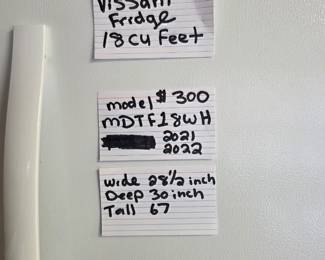 Vissani
Fridge
18 cu Feet
model $300
MDTF18WH
2021
2022
wide 28 1/2 inch
Deep 30 inch
Tall 67